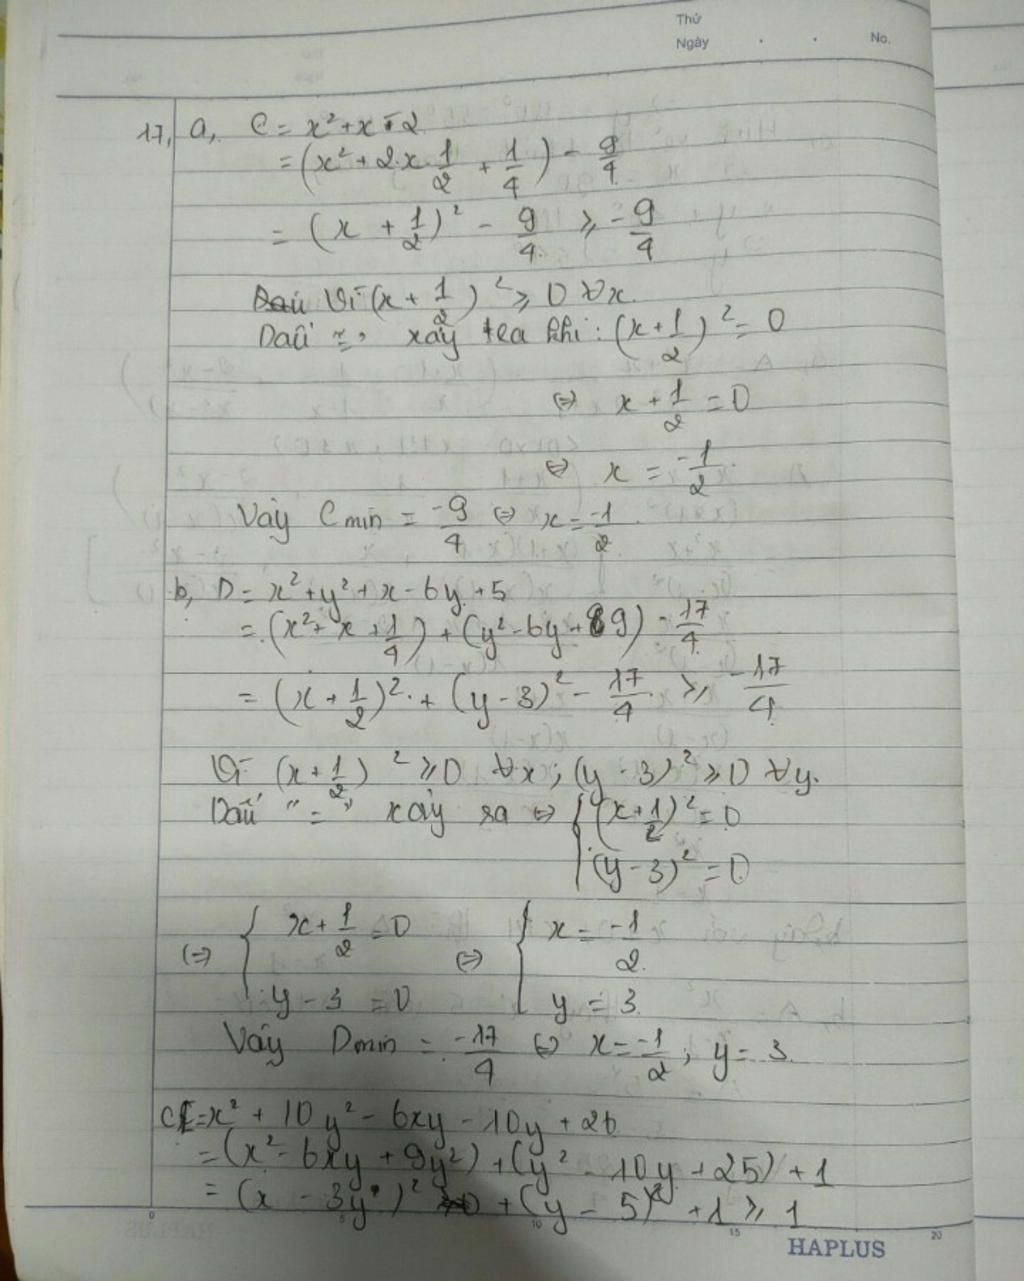 Thứ
Ngày . . No.
17, a, C = x² + x - 2
= (x² + 2.x.1/2 + 1/4) - 9/4
= (x + 1/2)² - 9/4 ≥ -9/4
Vì (x + 1/2)² ≥ 0 ∀x.
Dấu "=" xảy ra khi: (x + 1/2)² = 0
⇔ x + 1/2 = 0
⇔ x = -1/2.
Vậy Cmin = -9/4 ⇔ x = -1/2.
b, D = x² + y² + x - 6y + 5
= (x² + x + 1/4) + (y² - 6y + 9) - 17/4
= (x + 1/2)² + (y - 3)² - 17/4 ≥ -17/4
Vì (x + 1/2)² ≥ 0 ∀x; (y - 3)² ≥ 0 ∀y.
Dấu "=" xảy ra ⇔ { (x + 1/2)² = 0
(y - 3)² = 0
⇔ { x + 1/2 = 0 ⇔ { x = -1/2
y - 3 = 0 y = 3
Vậy Dmin = -17/4 ⇔ x = -1/2; y = 3
c, E = x² + 10y² - 6xy - 10y + 26
= (x² - 6xy + 9y²) + (y² - 10y + 25) + 1
= (x - 3y)² + (y - 5)² + 1 ≥ 1
0 5 10 15 20
HAPLUS